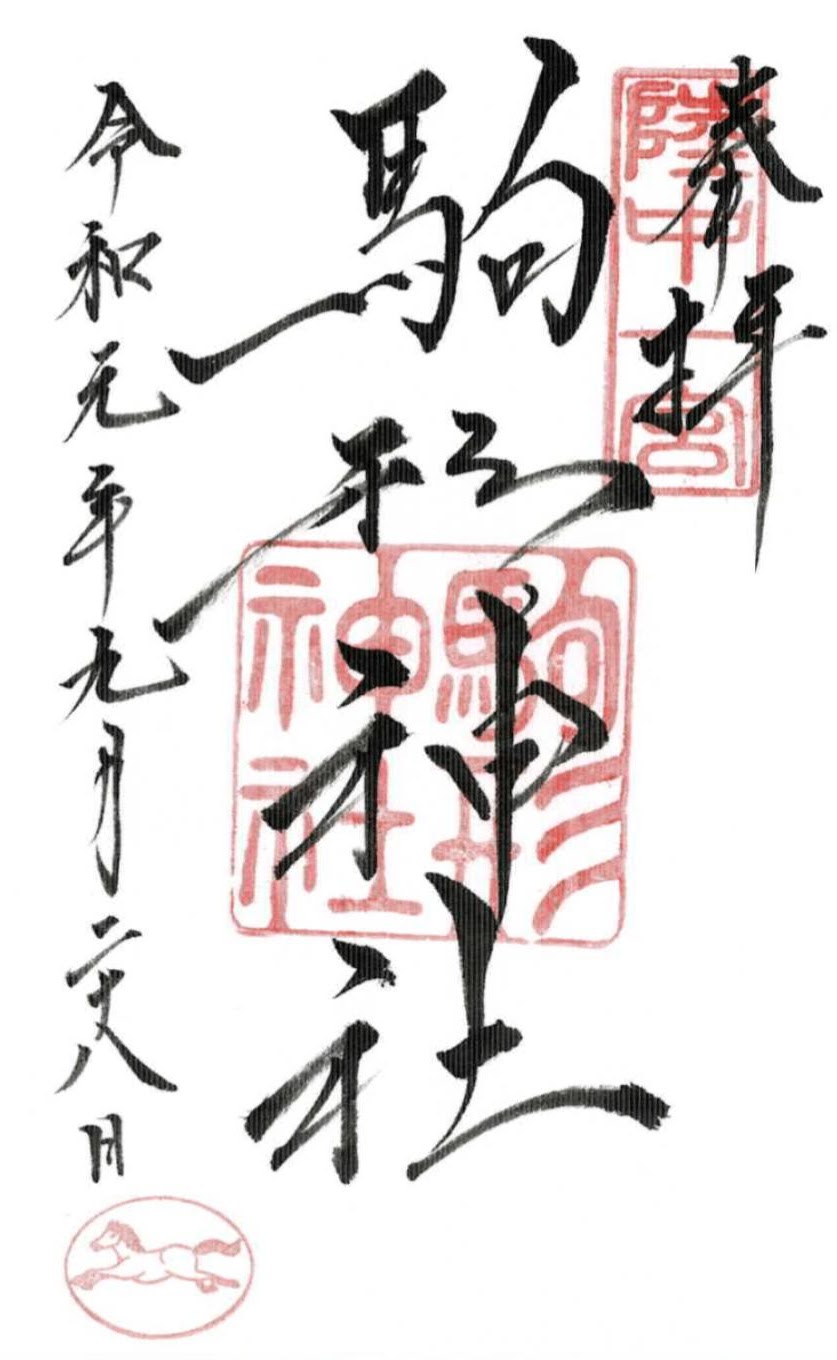 奉拝
陸中一宮
駒形神社
駒形神社
令和元年九月二十八日